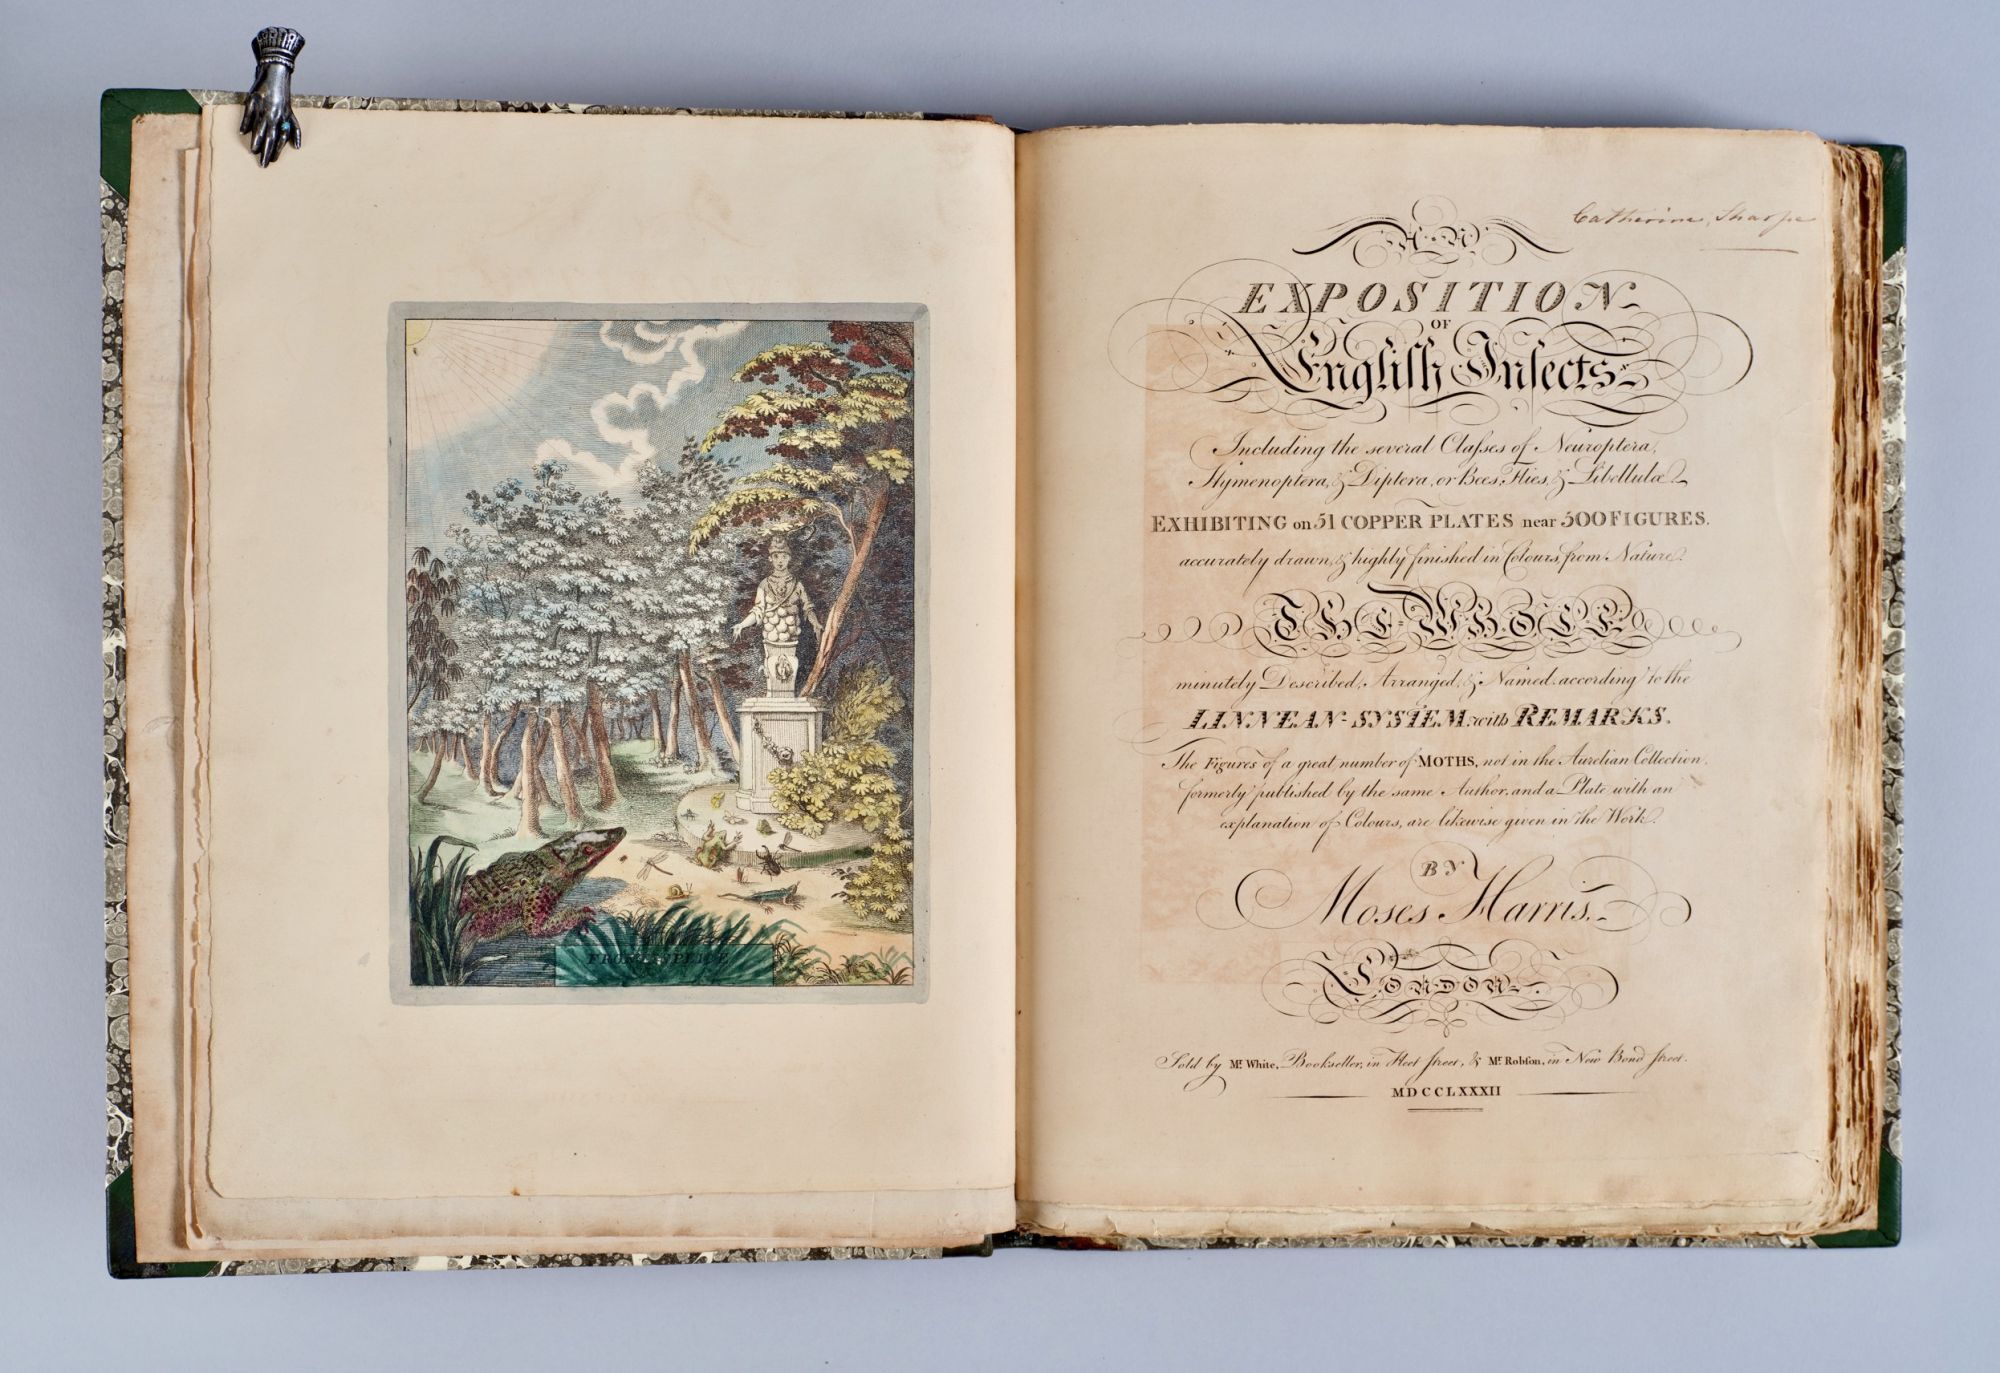 FRONTISPIECE
Catherine Sharpe
AN
EXPOSITION
OF
Engliſh Inſects
Including the several Claſses of Neuroptera,
Hymenoptera, & Diptera, or Bees, Flies, & Libellulæ
EXHIBITING on 51 COPPER PLATES near 500 FIGURES.
accurately drawn, & highly finished in Colours, from Nature.
THE WHOLE
minutely Described, Arranged, & Named, according to the
LINNEAN-SYSTEM, with REMARKS.
The Figures of a great number of MOTHS, not in the Aurelian Collection,
formerly published by the same Author, and a Plate with an
explanation of Colours, are likewise given in the Work.
BY
Moses Harris.
LONDON
Sold by Mr. White, Bookseller, in Fleet ſtreet, & Mr. Robſon, in New Bond ſtreet.
MDCCLXXXII